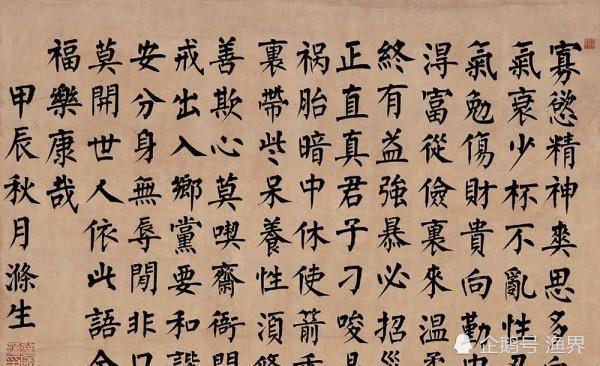 寡慾精神爽思多血
氣衰少杯不亂性忍
氣勉傷財貴向勤中
淂富從儉裏來温柔
終有益強暴必招災
正直真君子刁唆是
祸胎暗中休使箭乖
裏帶些呆養性湏修
善欺心莫喫齋衙門
戒出入鄉黨要和諧
安分身無辱閒非口
莫開世人依此語
福樂康哉
甲辰秋月滌生
企鹅号 渔界